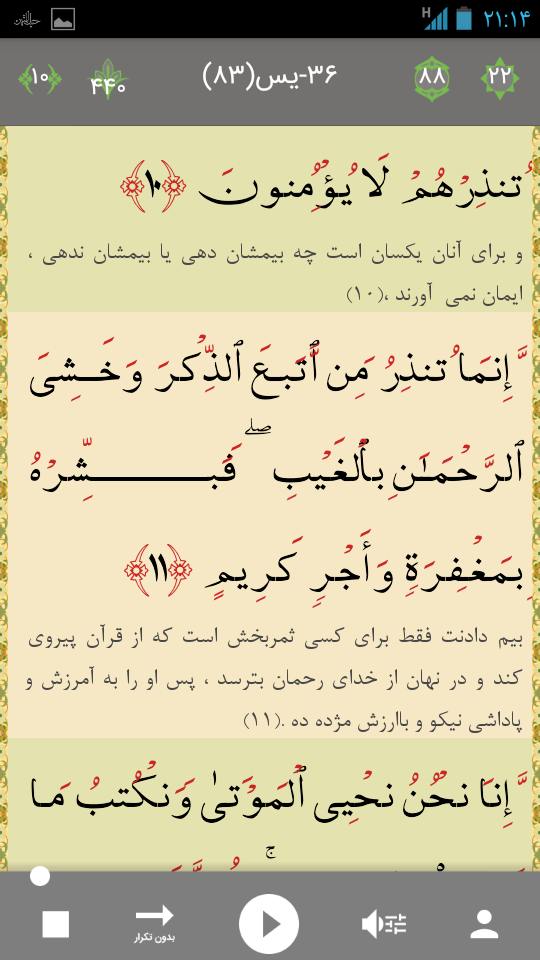 ۲۱:۱۴ H
۲۲ ۸۸ ۳۶-یس(۸۳) ۴۴۰ ۱۰
تُنذِرْهُمْ لَا يُؤْمِنُونَ ﴿١٠﴾
و برای آنان یکسان است چه بیمشان دهی یا بیمشان ندهی ،
ایمان نمی آورند ،(۱۰)
إِنَّمَا تُنذِرُ مَنِ ٱتَّبَعَ ٱلذِّكْرَ وَخَشِىَ
ٱلرَّحْمَـٰنَ بِٱلْغَيْبِ ۖ فَبَشِّرْهُ
بِمَغْفِرَةٍ وَأَجْرٍ كَرِيمٍ ﴿١١﴾
بیم دادنت فقط برای کسی ثمربخش است که از قرآن پیروی
کند و در نهان از خدای رحمان بترسد ، پس او را به آمرزش و
پاداشی نیکو و باارزش مژده ده .(۱۱)
إِنَّا نَحْنُ نُحْىِ ٱلْمَوْتَىٰ وَنَكْتُبُ مَا
بدون تکرار